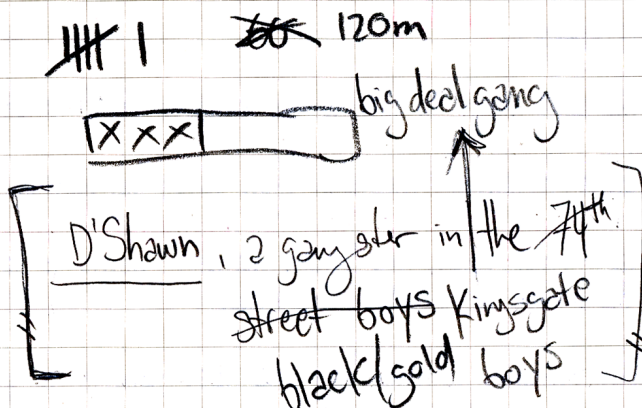 60 120m
XXX
big deal gang
D'Shawn, a gangster in the 74th
street boys Kingsgate
black/gold boys